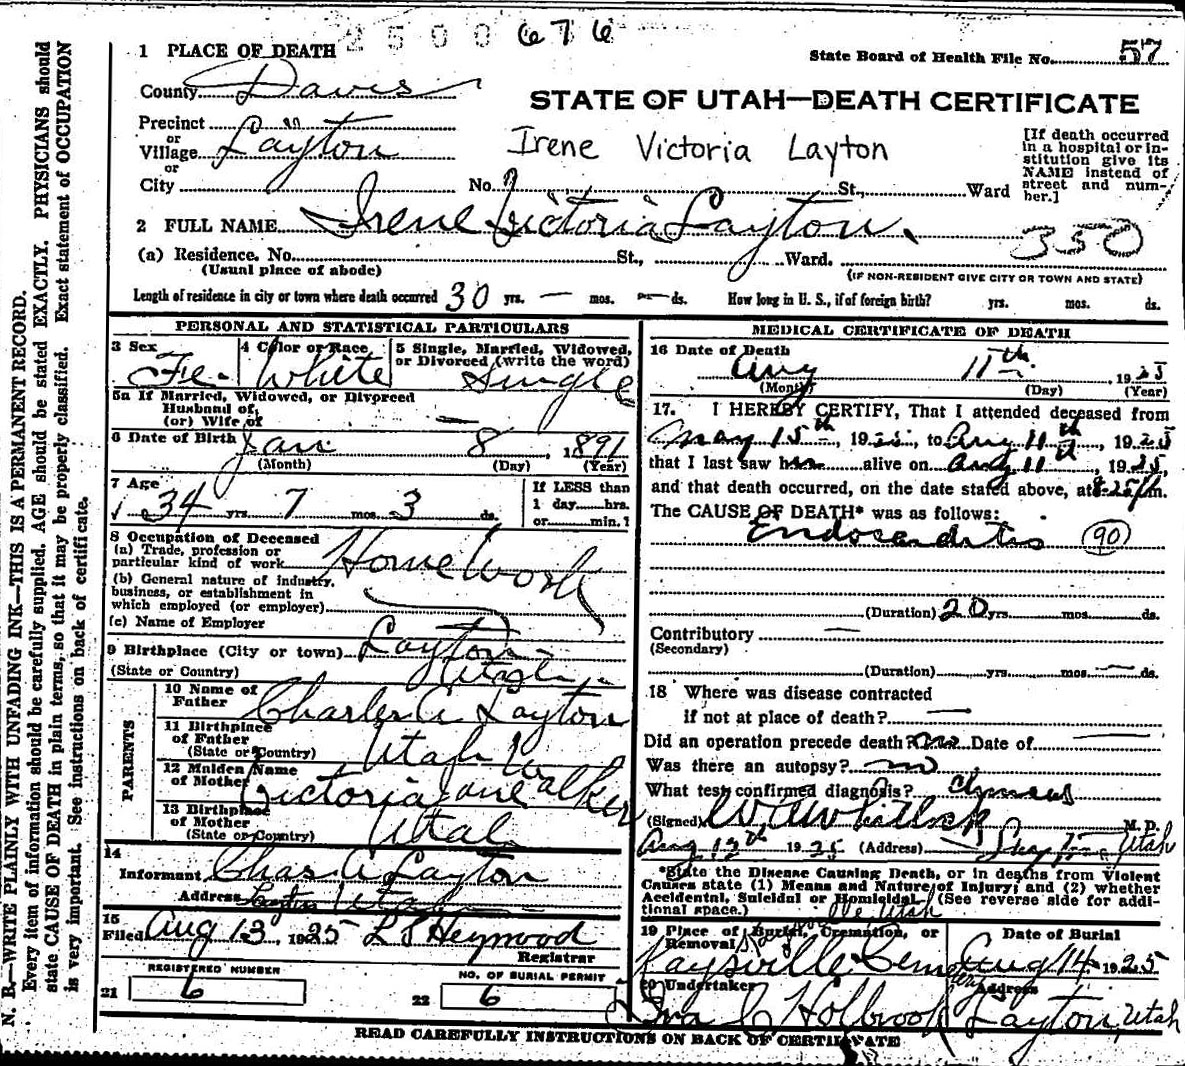 2500 676
1 PLACE OF DEATH
State Board of Health File No. 57
County Davis
STATE OF UTAH—DEATH CERTIFICATE
Precinct
or
Village Layton
or
City No. St., Ward
Irene Victoria Layton
[If death occurred in a hospital or in-
stitution give its
NAME instead of
street and num-
ber.]
2 FULL NAME Irene Victoria Layton
350
(a) Residence. No. St., Ward.
(Usual place of abode)
(IF NON-RESIDENT GIVE CITY OR TOWN AND STATE)
Length of residence in city or town where death occurred 30 yrs. — mos. — ds. How long in U. S., if of foreign birth? yrs. mos. ds.
PERSONAL AND STATISTICAL PARTICULARS
3 Sex Fe.
4 Color or Race White
5 Single, Married, Widowed,
or Divorced (write the word)
Single
5a If Married, Widowed, or Divorced
Husband of,
(or) Wife of —
6 Date of Birth Jan 8, 1891
(Month) (Day) (Year)
7 Age 34 yrs. 7 mos. 3 ds.
If LESS than
1 day hrs.
or min.?
8 Occupation of Deceased
(a) Trade, profession or
particular kind of work Home Work
(b) General nature of industry,
business, or establishment in
which employed (or employer)
(c) Name of Employer
9 Birthplace (City or town) Layton
(State or Country) Utah
PARENTS
10 Name of
Father Charles A Layton
11 Birthplace
of Father
(State or Country) Utah
12 Maiden Name
of Mother Victoria Jane Walker
13 Birthplace
of Mother
(State or Country) Utah
14
Informant Chas A Layton
Address Layton Utah
15
Filed Aug 13, 1925 L S Heywood
Registrar
REGISTERED NUMBER
21 6
NO. OF BURIAL PERMIT
22 6
MEDICAL CERTIFICATE OF DEATH
16 Date of Death
Aug 11th, 1925
(Month) (Day) (Year)
17. I HEREBY CERTIFY, That I attended deceased from
May 15th, 1925, to Aug 11th, 1925
that I last saw her alive on Aug 11, 1925,
and that death occurred, on the date stated above, at 8:25 Pm.
The CAUSE OF DEATH* was as follows:
Endocarditis 90
(Duration) 20 yrs. mos. ds.
Contributory —
(Secondary)
(Duration) yrs. mos. — ds.
18 Where was disease contracted
if not at place of death? —
Did an operation precede death? no Date of —
Was there an autopsy? no
What test confirmed diagnosis?
(Signed) M. D.
Aug 12th 1925 (Address) Layton, Utah
*State the Disease Causing Death, or in deaths from Violent
Causes state (1) Means and Nature of Injury; and (2) whether
Accidental, Suicidal or Homicidal. (See reverse side for addi-
tional space.)
19 Place of Burial, Cremation, or
Removal Kaysville Utah
Kaysville Cemetery
Date of Burial
Aug 14 1925
20 Undertaker
Ira C Holbrook
Address
Layton, Utah
READ CAREFULLY INSTRUCTIONS ON BACK OF CERTIFICATE
N. B.—WRITE PLAINLY WITH UNFADING INK—THIS IS A PERMANENT RECORD.
Every item of information should be carefully supplied. AGE should be stated EXACTLY. PHYSICIANS should
state CAUSE OF DEATH in plain terms, so that it may be properly classified. Exact statement of OCCUPATION
is very important. See instructions on back of certificate.